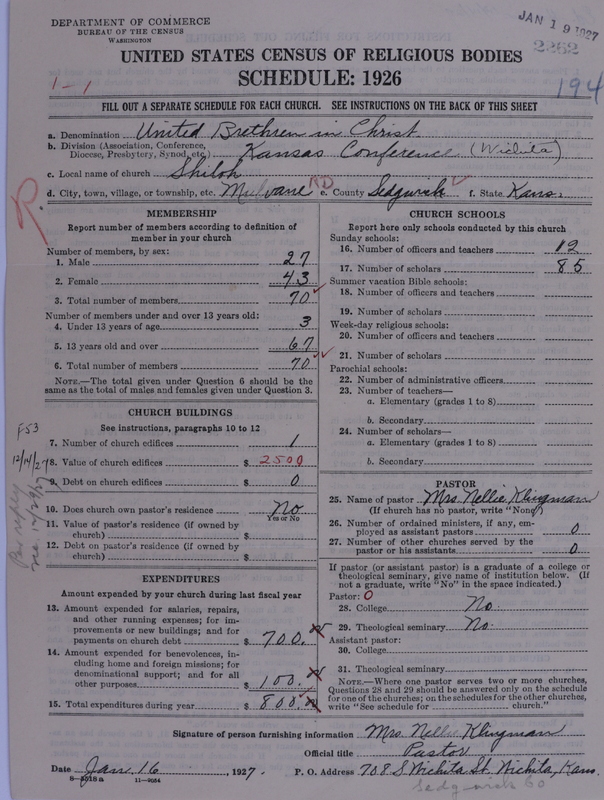 DEPARTMENT OF COMMERCE
BUREAU OF THE CENSUS
WASHINGTON
JAN 19 1927
2262
UNITED STATES CENSUS OF RELIGIOUS BODIES
SCHEDULE: 1926
1-1
194
FILL OUT A SEPARATE SCHEDULE FOR EACH CHURCH. SEE INSTRUCTIONS ON THE BACK OF THIS SHEET
a. Denomination United Brethren in Christ
b. Division (Association, Conference, Diocese, Presbytery, Synod, etc.) Kansas Conference (Wichita)
c. Local name of church Shiloh
d. City, town, village, or township, etc. Mulvane RD e. County Sedgwick f. State Kans.
R.
MEMBERSHIP
Report number of members according to definition of
member in your church
Number of members, by sex:
1. Male 27
2. Female 43
3. Total number of members 70
Number of members under and over 13 years old:
4. Under 13 years of age 3
5. 13 years old and over 67
6. Total number of members 70
NOTE.—The total given under Question 6 should be
same as the total of males and females given under Question 3.
CHURCH BUILDINGS
See instructions, paragraphs 10 to 12
7. Number of church edifices 1
8. Value of church edifices $ 2500
9. Debt on church edifices $ 0
F53
12/14/27
10. Does church own pastor's residence No
Yes or No
11. Value of pastor's residence (if owned by
church) $
12. Debt on pastor's residence (if owned by
church) $
EXPENDITURES
Amount expended by your church during last fiscal year
13. Amount expended for salaries, repairs,
and other running expenses; for im-
provements or new buildings; and for
payments on church debt $ 700.
14. Amount expended for benevolences, in-
cluding home and foreign missions; for
denominational support; and for all
other purposes $ 100.
15. Total expenditures during year $ 800.
CHURCH SCHOOLS
Report here only schools conducted by this church
Sunday schools:
16. Number of officers and teachers 12
17. Number of scholars 85
Summer vacation Bible schools:
18. Number of officers and teachers
19. Number of scholars
Week-day religious schools:
20. Number of officers and teachers
21. Number of scholars
Parochial schools:
22. Number of administrative officers
23. Number of teachers—
a. Elementary (grades 1 to 8)
b. Secondary
24. Number of scholars—
a. Elementary (grades 1 to 8)
b. Secondary
PASTOR
25. Name of pastor Mrs. Nellie Klingman
(If church has no pastor, write "None")
26. Number of ordained ministers, if any, em-
ployed as assistant pastors 0
27. Number of other churches served by the
pastor or his assistants 0
If pastor (or assistant pastor) is a graduate of a college or
theological seminary, give name of institution below. (If
not a graduate, write "No" in the space indicated.)
Pastor: 0
28. College No.
29. Theological seminary No.
Assistant pastor:
30. College
31. Theological seminary
NOTE.—Where one pastor serves two or more churches,
Questions 28 and 29 should be answered only on the schedule
for one of the churches; on the schedules for the other churches,
write "See schedule for church."
Signature of person furnishing information Mrs. Nellie Klingman
Official title Pastor
Date Jan. 16, 1927. P. O. Address 708 S Wichita St. Wichita, Kans.
8—5518a 11—9054
Sedgwick Co